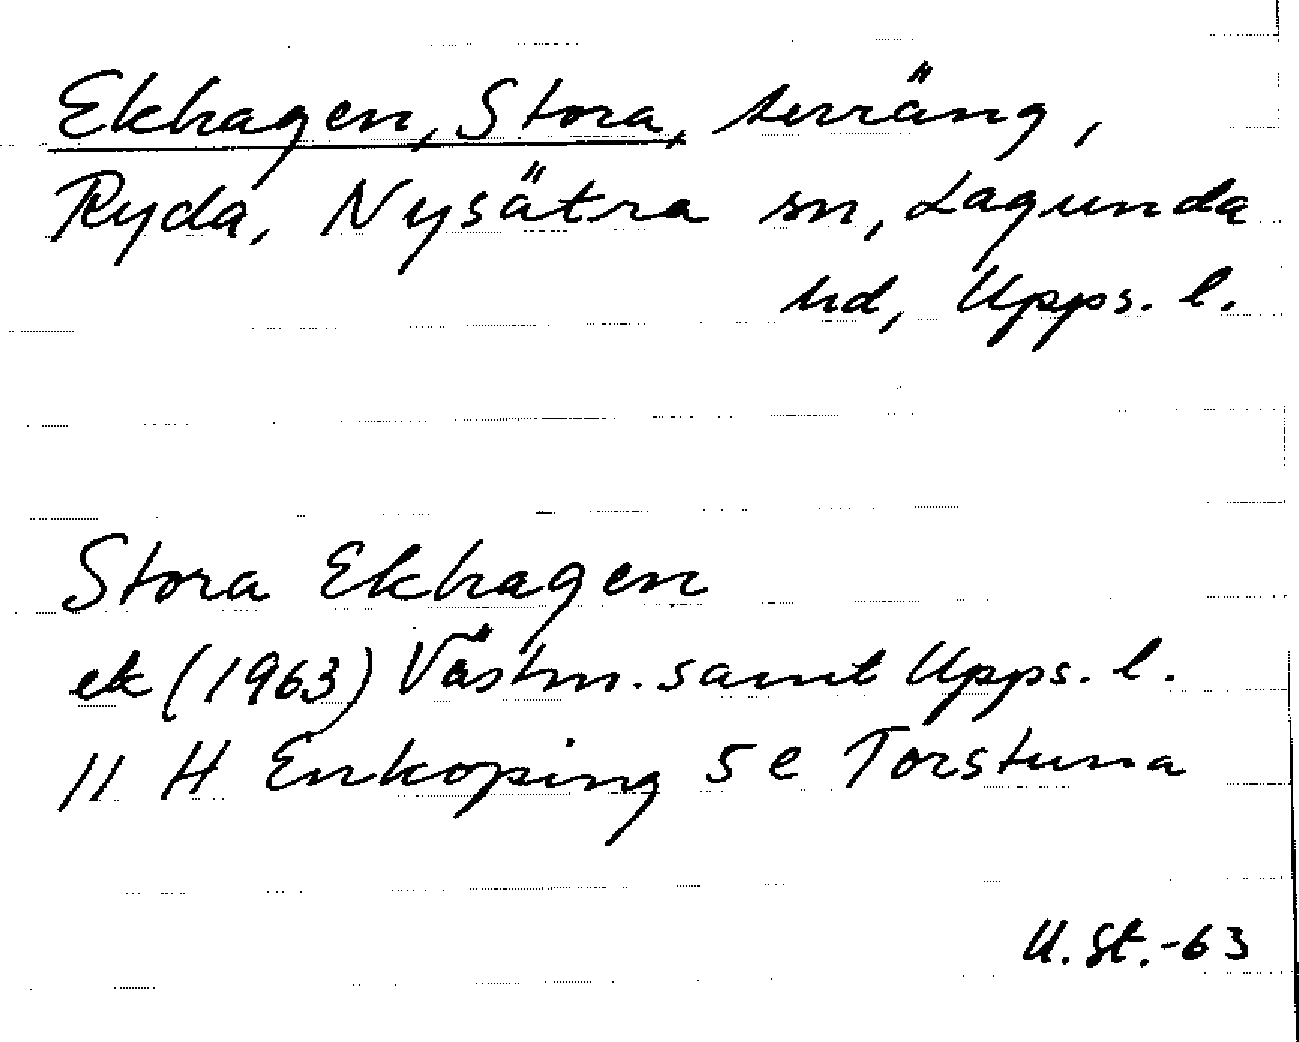 Ekhagen, Stora, terräng,
Ryda, Nysätra sn, Lagunda
hd, Upps. l.
Stora Ekhagen
ek (1963) Västm. samt Upps. l.
11 H Enköping 5 e Torstuna
U. St. -63